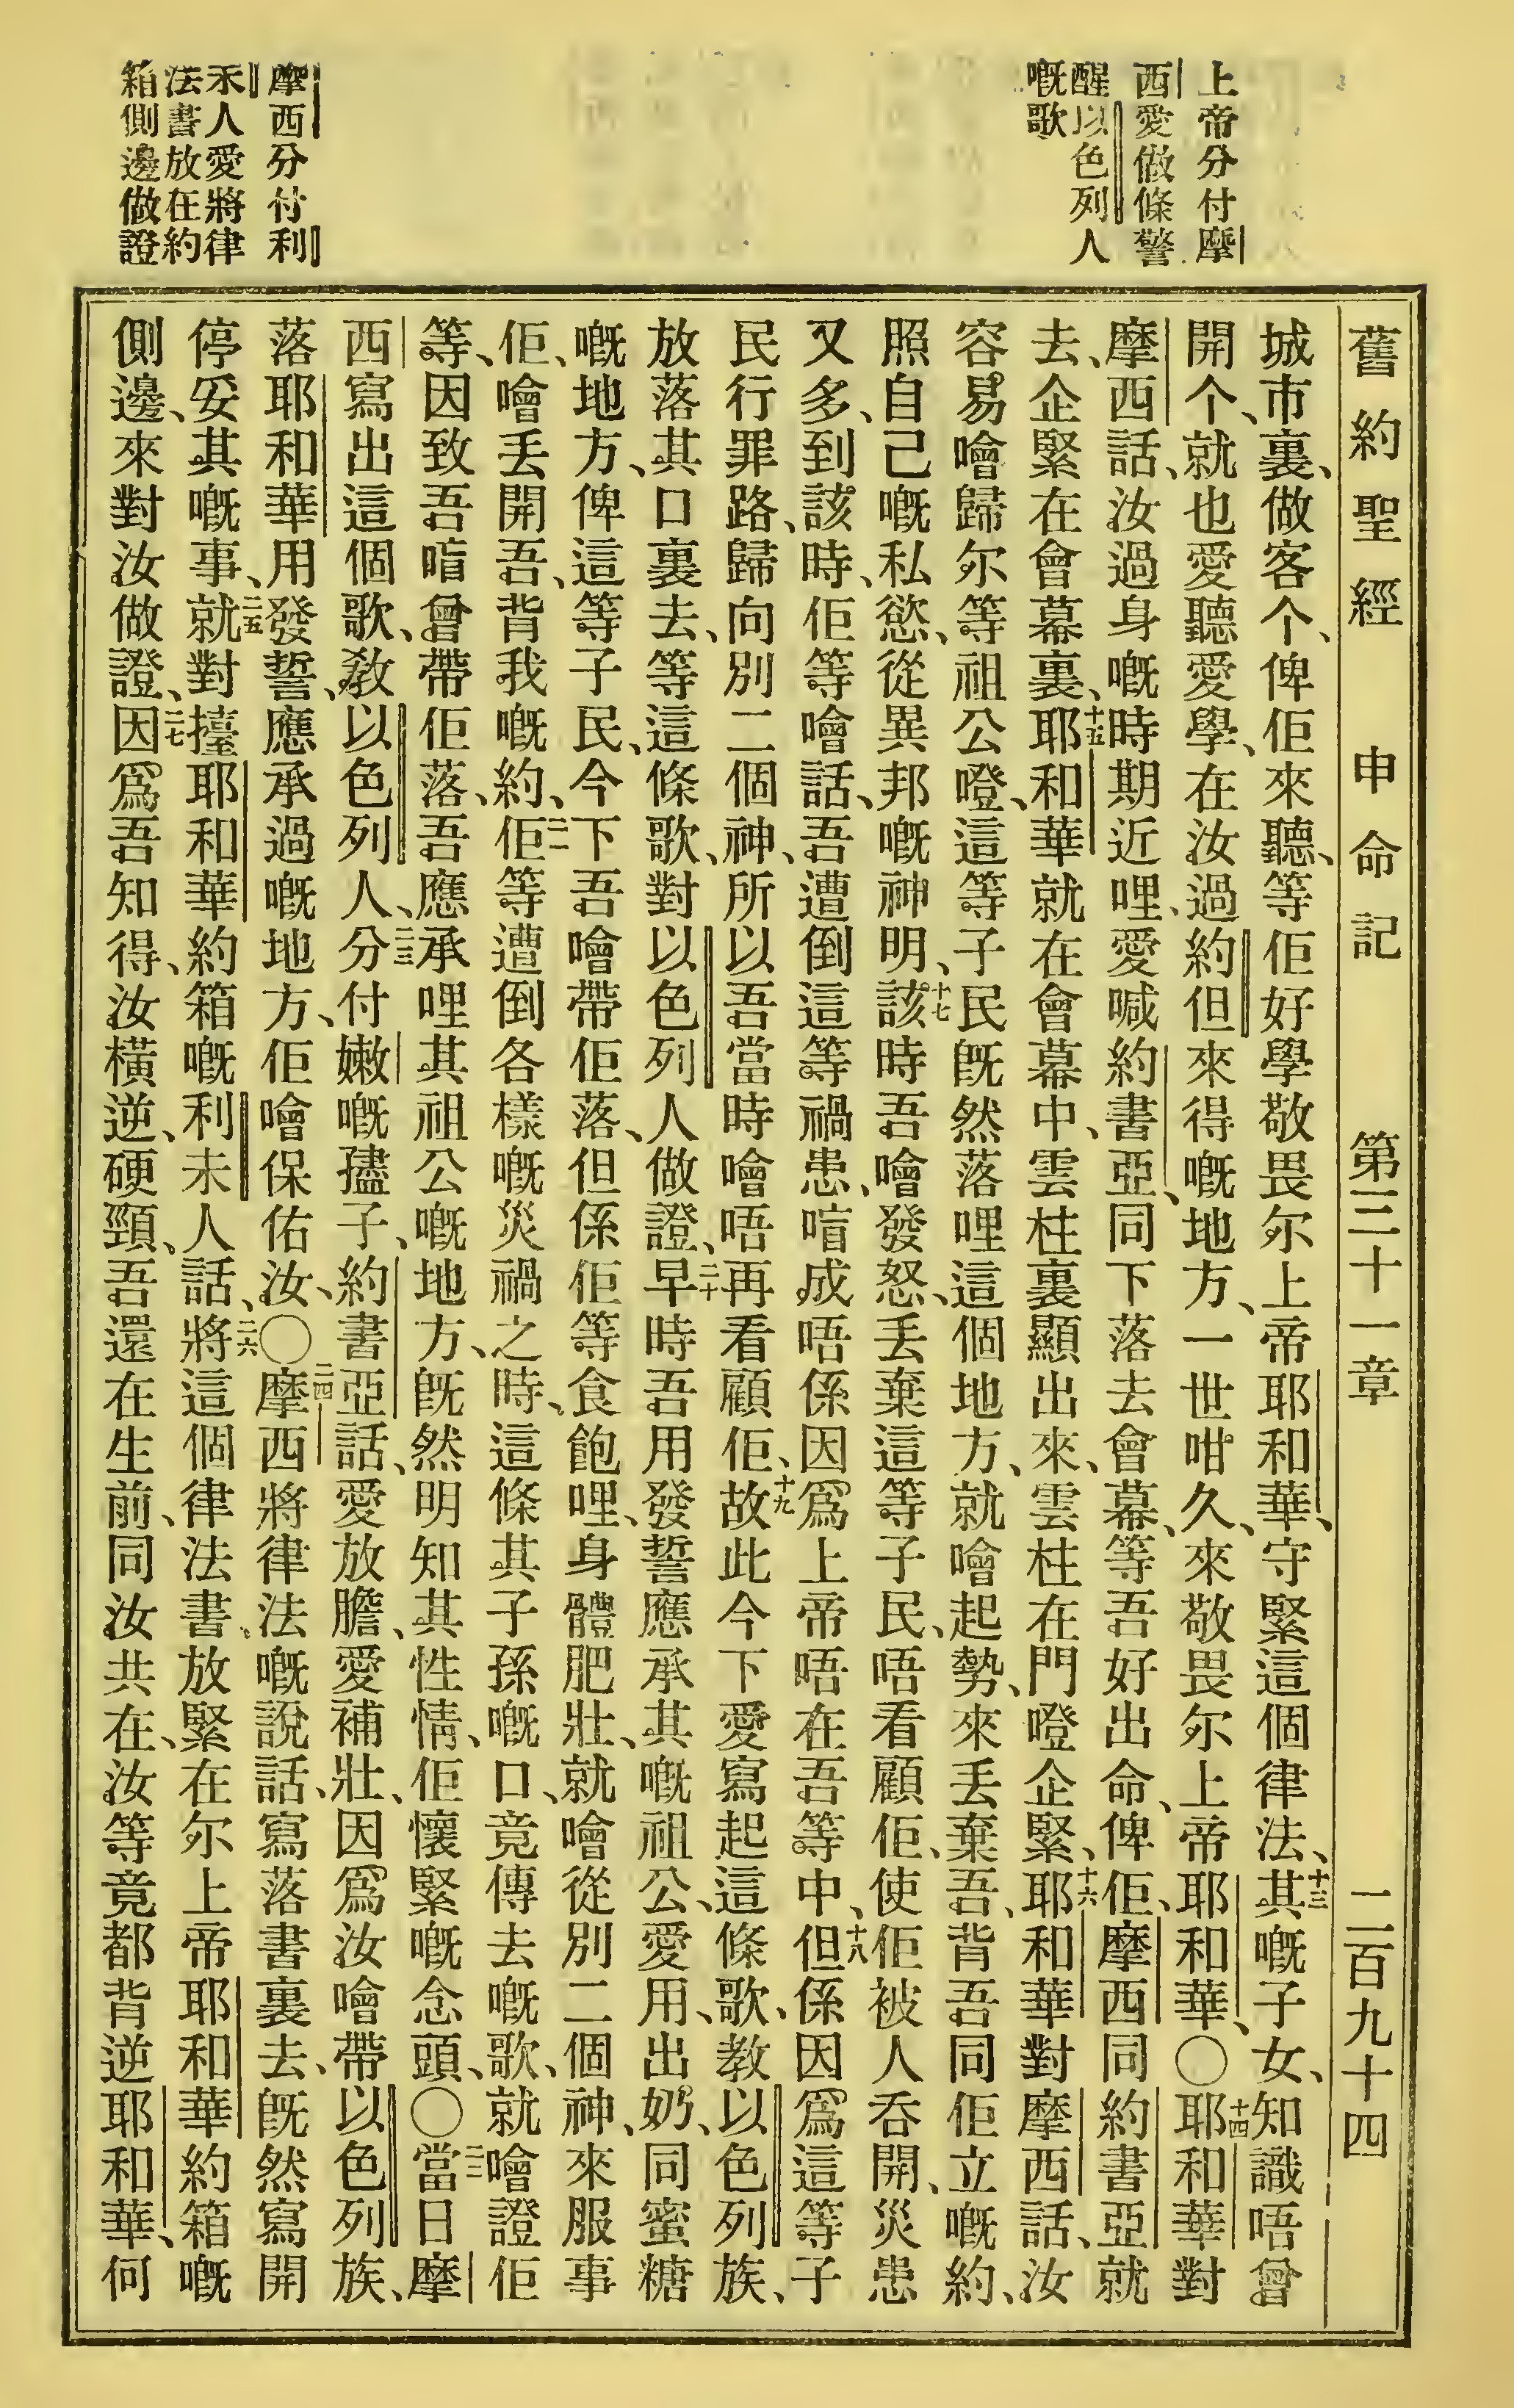 上帝分付摩
西愛做條警
醒以色列人
嘅歌
摩西分付利
未人愛將律
法書放在約
箱側邊做證
舊約聖經 申命記 第三十一章 二百九十四
城市裏、做客个、俾佢來聽、等佢好學敬畏尔上帝耶和華、守緊這個律法、十三其嘅子女、知識唔曾
開个、就也愛聽愛學、在汝過約但來得嘅地方、一世咁久、來敬畏尔上帝耶和華、〇十四耶和華對
摩西話、汝過身嘅時期近哩、愛喊約書亞、同下落去會幕、等吾好出命、俾佢、摩西同約書亞就
去、企緊在會幕裏、十五耶和華就在會幕中、雲柱裏顯出來、雲柱在門嶝企緊、十六耶和華對摩西話、汝
容易噲歸尔等祖公嶝、這等子民旣然落哩這個地方、就噲起勢、來丢棄吾、背吾同佢立嘅約、
照自己嘅私慾、從異邦嘅神明、十七該時吾噲發怒、丢棄這等子民、唔看顧佢、使佢被人呑開、災患
又多、到該時、佢等噲話、吾遭倒這等禍患、喑成唔係因爲上帝唔在吾等中、十八但係因爲這等子
民行罪路、歸向別二個神、所以吾當時噲唔再看顧佢、十九故此今下愛寫起這條歌、教以色列族、
放落其口裏去、等這條歌、對以色列人做證、二十早時吾用發誓應承其嘅祖公、愛用、出奶、同蜜糖
嘅地方、俾這等子民、今下吾噲帶佢落、但係佢等食飽哩、身體肥壯、就噲從別二個神、來服事
佢、噲丢開吾、背我嘅約、二一佢等遭倒各樣嘅災禍之時、這條其子孫嘅口、竟傳去嘅歌、就噲證佢
等、因致吾喑曾帶佢落、吾應承哩其祖公嘅地方、旣然明知其性情、佢懷緊嘅念頭、〇二二當日摩
西寫出這個歌、敎以色列人、二三分付嫩嘅孻子、約書亞話、愛放膽、愛補壯、因爲汝噲帶以色列族、
落耶和華用發誓、應承過嘅地方、佢噲保佑汝、〇二四摩西將律法嘅說話、寫落書裏去、旣然寫開
停妥其嘅事、二五就對擡耶和華約箱嘅利未人話、二六將這個律法書、放緊在尔上帝耶和華約箱嘅
側邊、來對汝做證、二七因爲吾知得、汝橫逆、硬頸、吾還在生前、同汝共在、汝等竟都背逆耶和華、何